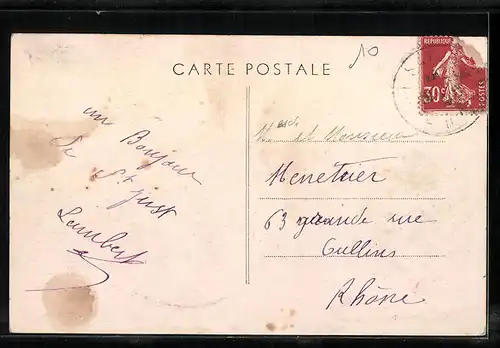 10
CARTE POSTALE
REPUBLIQUE
30c
POSTES
un Bonjour
de St Just
Lambert
et Monsieur
Menetrier
63 grande rue
Oullins
Rhône